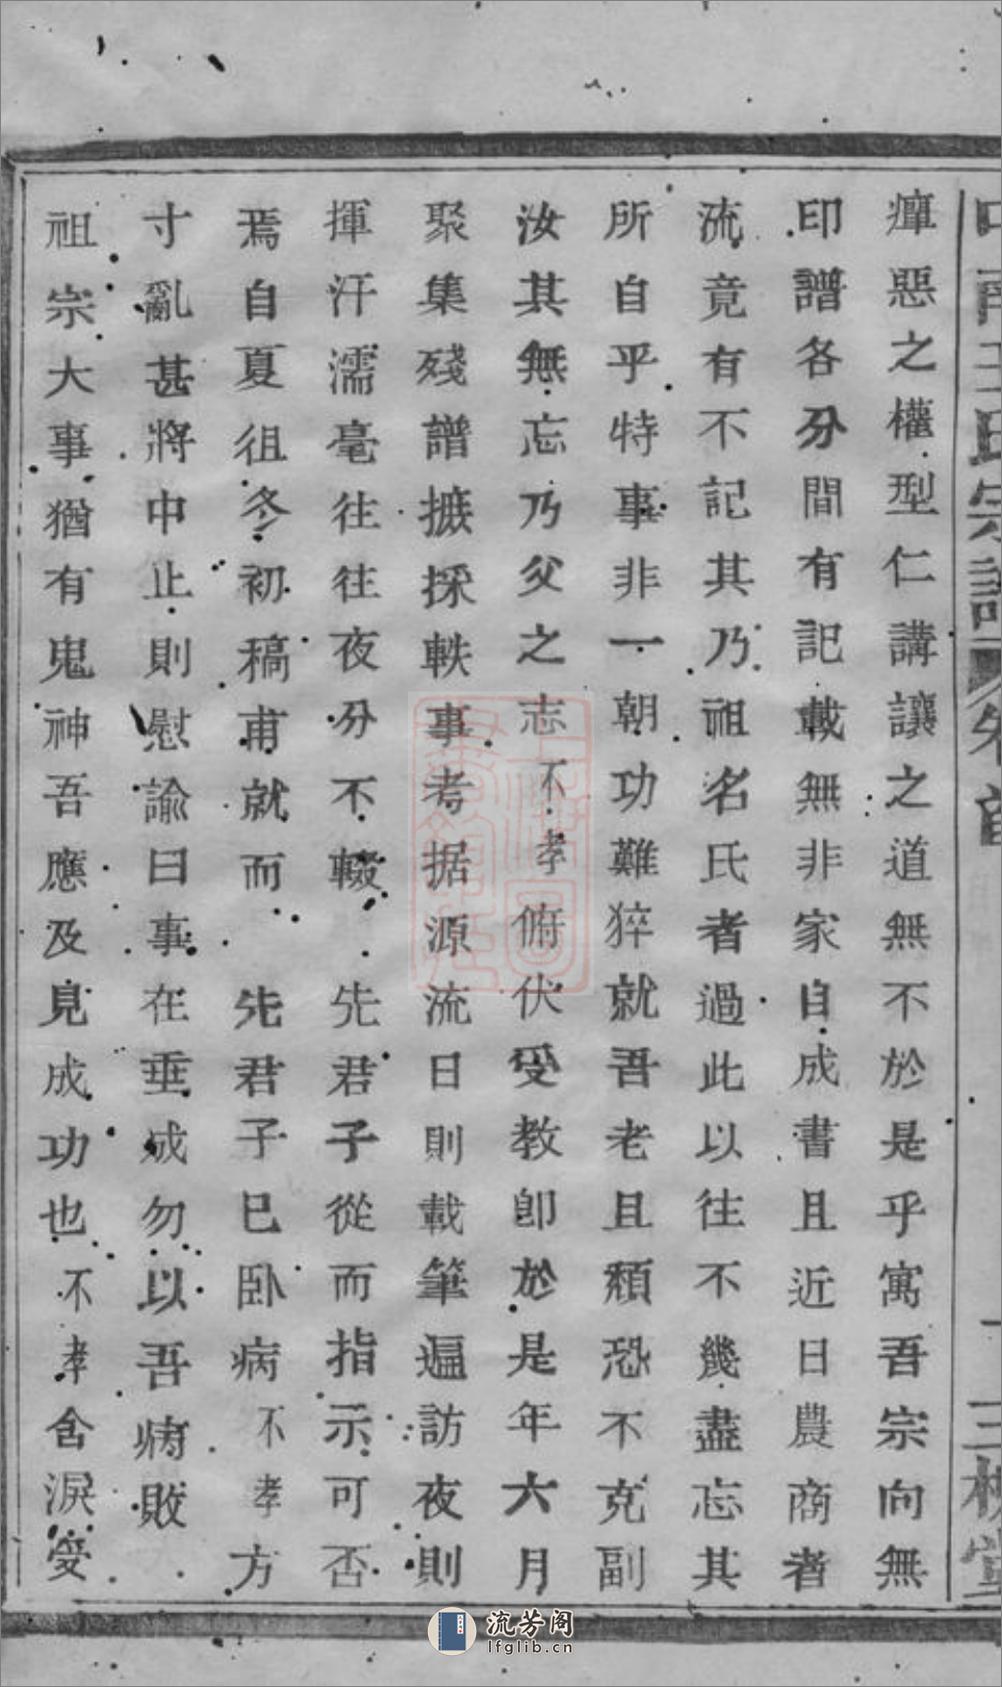 王氏宗譜 卷首 三槐堂
癉惡之權型仁講讓之道無不於是乎寓吾宗向無
印譜各分間有記載無非家自成書且近日農商者
流竟有不記其乃祖名氏者過此以往不幾盡忘其
所自乎特事非一朝功難猝就吾老且頹恐不克副
汝其無忘乃父之志不孝俯伏受教卽於是年六月
聚集殘譜摭採軼事考据源流日則載筆遍訪夜則
揮汗濡毫往往夜分不輟 先君子從而指示可否
焉自夏徂冬初稿甫就而 先君子已卧病不孝方
寸亂甚將中止則慰諭曰事在垂成勿以吾病敗
祖宗大事猶有鬼神吾應及見成功也不孝含淚受
流芳阁
lfglib.cn